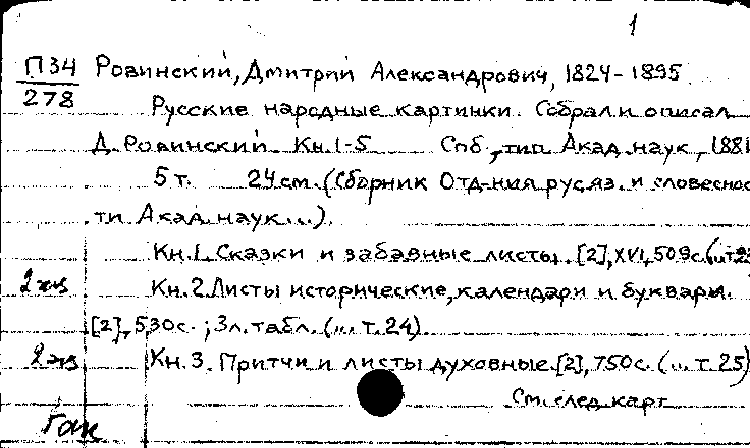 1
П34 Ровинский, Дмитрий Александрович, 1824-1895.
278 Русские народные картинки. Собрал и описал
Д. Ровинский. Кн. 1-5 Спб., тип. Акад. наук, 1881
5 т. 24 см. (Сборник Отд-ния рус. яз. и словеснос
ти Акад. наук...).
Кн. 1. Сказки и забавные листы. [2], XVI, 509 с. (... т. 23
2 экз Кн. 2. Листы исторические, календари и буквари.
[2], 530 с.; 3 л. табл. (... т. 24).
2 экз Кн. 3. Притчи и листы духовные. [2], 750 с. (... т. 25)
См. след. карт.